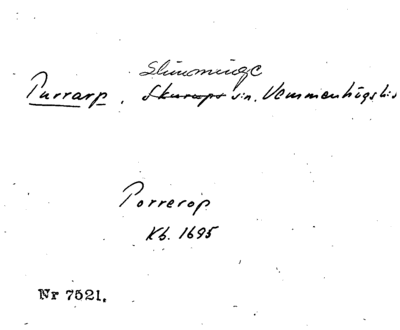 Slimminge
Purrarp. Skurups sn. Vemmenhögs hd
Porrerop
Kb. 1695
Nr 7521.